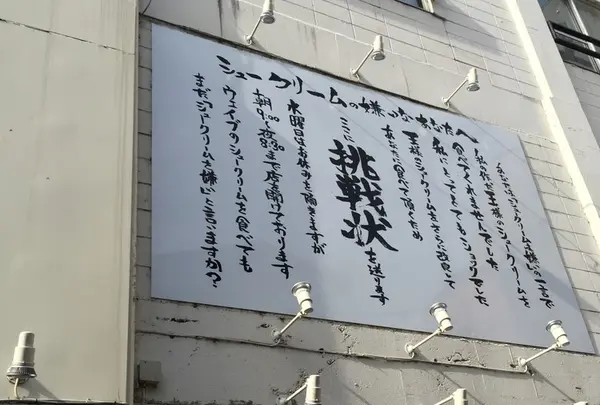 シュークリームの嫌いなあなたへ
あなたがシュークリームを嫌いの一言で
私の作る王様のシュークリームを
食べてくれませんでした
私にとってとてもショックでした
王様のシュークリームをさらに改良して
あなたに食べて頂くため
ここに挑戦状を送ります
水曜日はお休みを頂きますが
まで店を開けております
ウェイブのシュークリームを食べても
まだシュークリームを嫌いと言いますか?